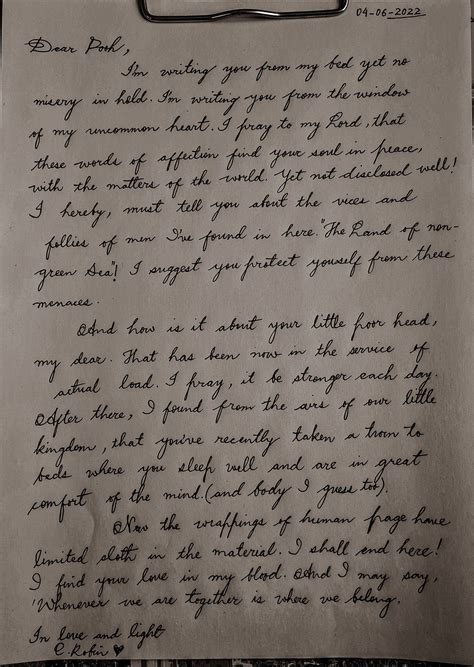 04-06-2022
Dear Pooh,
I'm writing you from my bed yet no
misery in hold. I'm writing you from the window
of my uncommon heart. I pray to my Lord, that
these words of affection find your soul in peace,
with the matters of the world. Yet not disclosed well!
I hereby, must tell you about the vices and
follies of men I've found in here. "The Land of non-
green Sea"! I suggest you protect youself from these
menaces.
And how is it about your little poor head,
my dear. That has been now in the service of
actual load. I pray, it be stronger each day.
After there, I found from the airs of our little
kingdom, that you've recently taken a to
beds where you sleep well and are in great
comfort of the mind. (and body I guess too).
Now the wrappings of human page have
limited sloth in the material. I shall end here!
I find your love in my blood. And I may say,
'Whenever we are together is where we belong.
In love and light
C. Robin ♥